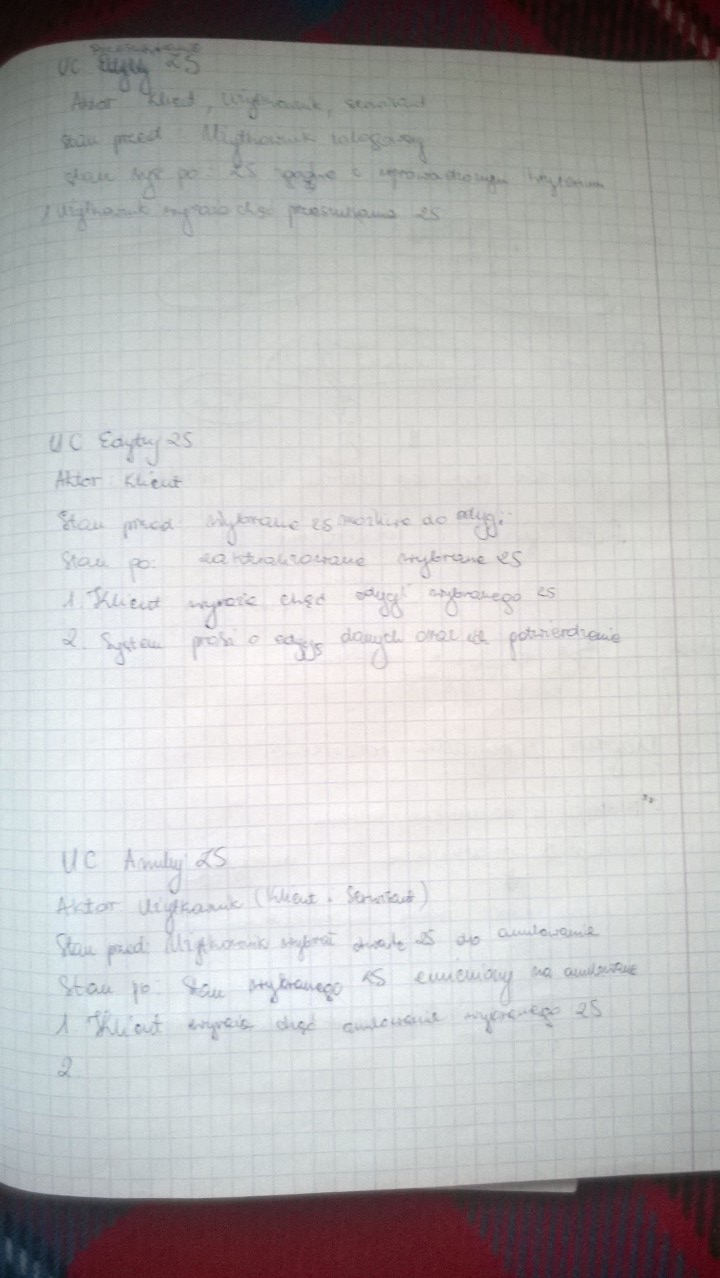 UC 25
Aktor Klient, Użytkownik, serwisant
Stan przed: Użytkownik zalogowany
Stan sys po: 25 zgodne z wprowadzonym kryterium
1 Użytkownik wyraża chęć przeszukania 25
UC Edytuj 25
Aktor: Klient
Stan przed: Wybrane 25 możliwe do edycji
Stan po: zaktualizowane wybrane 25
1. Klient wyraża chęć edycji wybranego 25
2. System prosi o edycję danych oraz ich potwierdzenie
UC Anuluj 25
Aktor Użytkownik (Klient, Serwisant)
Stan przed: Użytkownik wybrał 25 do anulowania
Stan po: Stan wybranego 25 zmieniony na anulowane
1 Klient wyraża chęć anulowania wybranego 25
2